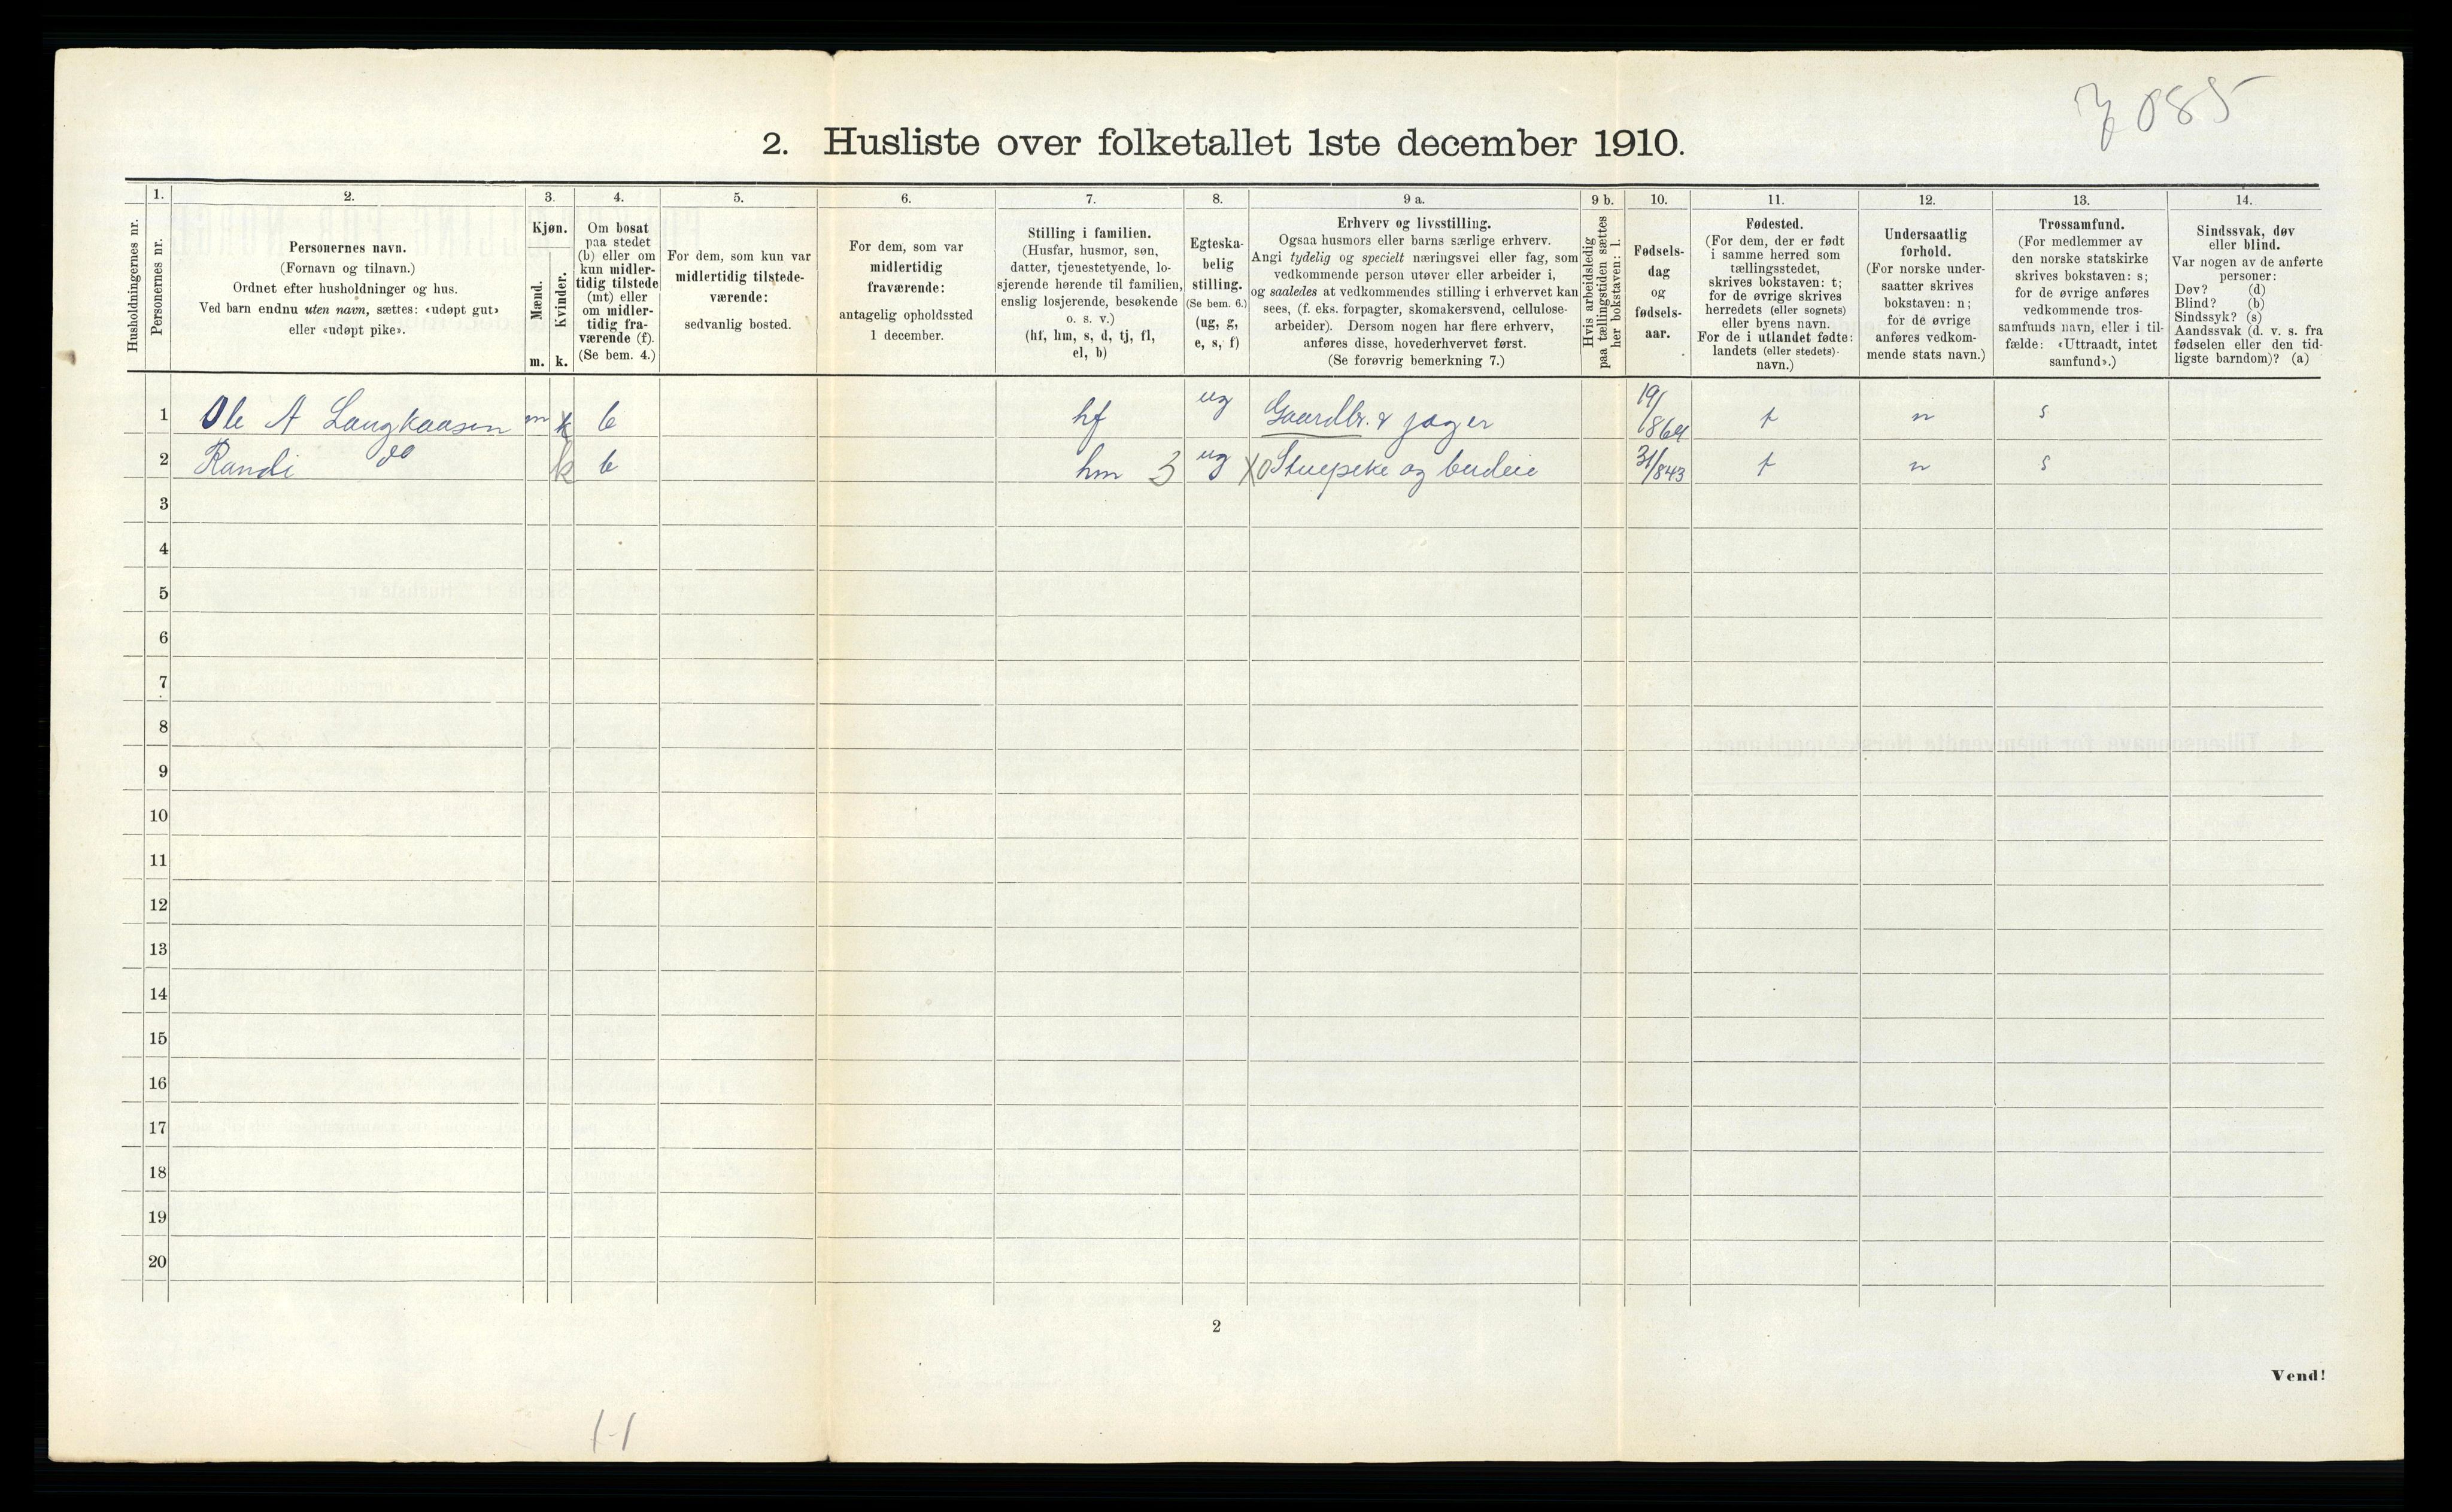 7085
2. Husliste over folketallet 1ste december 1910.
Husholdningernes nr.
1.
Personernes nr.
2.
Personernes navn.
(Fornavn og tilnavn.)
Ordnet efter husholdninger og hus.
Ved barn endnu uten navn, sættes: «udøpt gut»
eller «udøpt pike».
3.
Kjøn.
Mænd.
m.
Kvinder.
k.
4.
Om bosat
paa stedet
(b) eller om
kun midler-
tidig tilstede
(mt) eller
om midler-
tidig fra-
værende (f).
(Se bem. 4.)
5.
For dem, som kun var
midlertidig tilstede-
værende:
sedvanlig bosted.
6.
For dem, som var
midlertidig
fraværende:
antagelig opholdssted
1 december.
7.
Stilling i familien.
(Husfar, husmor, søn,
datter, tjenestetyende, lo-
sjerende hørende til familien,
enslig losjerende, besøkende
o. s. v.)
(hf, hm, s, d, tj, fl,
el, b)
8.
Egteska-
belig
stilling.
(Se bem. 6.)
(ug, g,
e, s, f)
9 a.
Erhverv og livsstilling.
Ogsaa husmors eller barns særlige erhverv.
Angi tydelig og specielt næringsvei eller fag, som
vedkommende person utøver eller arbeider i,
og saaledes at vedkommendes stilling i erhvervet kan
sees, (f. eks. forpagter, skomakersvend, cellulose-
arbeider). Dersom nogen har flere erhverv,
anføres disse, hovederhvervet først.
(Se forøvrig bemerkning 7.)
9 b.
Hvis arbeidsledig
paa tællingstiden sættes
her bokstaven: l.
10.
Fødsels-
dag
og
fødsels-
aar.
11.
Fødested.
(For dem, der er født
i samme herred som
tællingsstedet,
skrives bokstaven: t;
for de øvrige skrives
herredets (eller sognets)
eller byens navn.
For de i utlandet fødte:
landets (eller stedets)-
navn.)
12.
Undersaatlig
forhold.
(For norske under-
saatter skrives
bokstaven: n;
for de øvrige
anføres vedkom-
mende stats navn.)
13.
Trossamfund.
(For medlemmer av
den norske statskirke
skrives bokstaven: s;
for de øvrige anføres
vedkommende tros-
samfunds navn, eller i til-
fælde: «Uttraadt, intet
samfund».)
14.
Sindssvak, døv
eller blind.
Var nogen av de anførte
personer:
Døv? (d)
Blind? (b)
Sindssyk? (s)
Aandssvak (d. v. s. fra
fødselen eller den tid-
ligste barndom)? (a)
1 Ole A Langkaasen m k b hf ug Gaardbr. & jager 19/1 864 t n s
2 Randi do k b hm 3 ug X0 Stuepike og budeie 31/843 t n s
3
4
5
6
7
8
9
10
11
12
13
14
15
16
17
18
19
20
2
Vend!
1-1